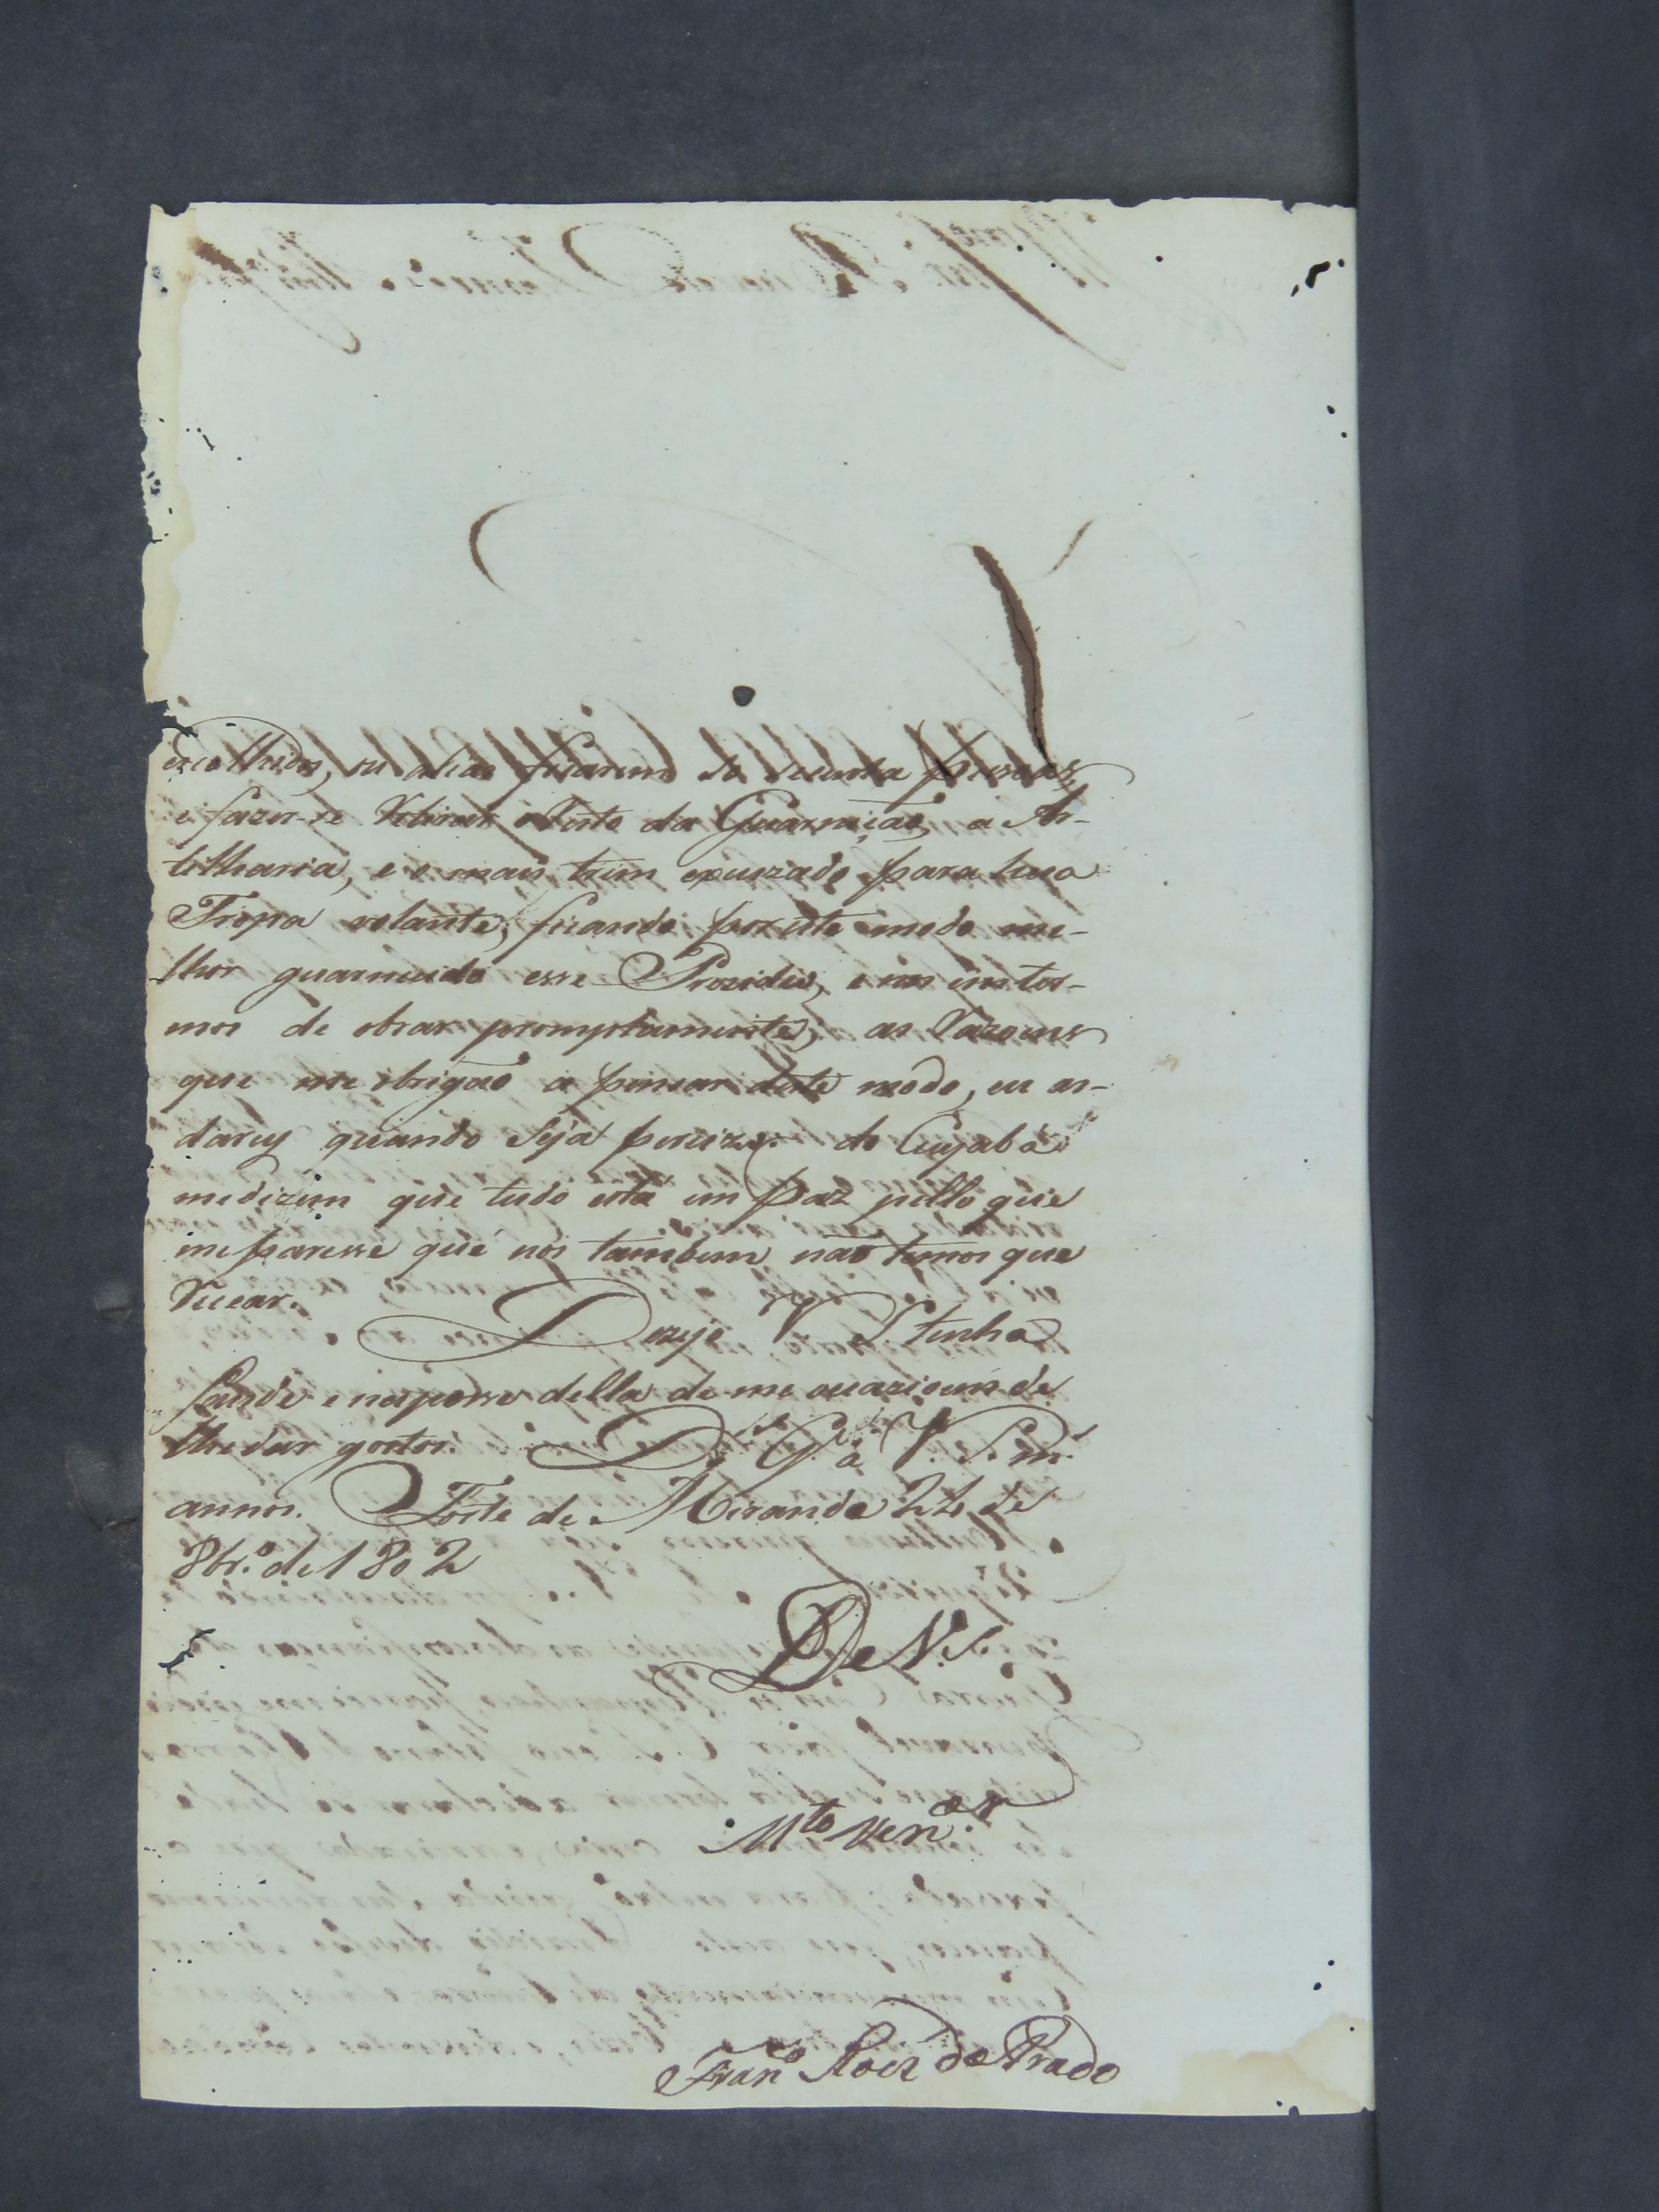 escolhidos, ou alias ficarem só secenta pessoas,
e fazer-se Retirar o Resto da Guarnição, a Ar-
tilharia, e o mais trem excuzado para hua
Tropa volante, ficando por este modo me-
lhor guarnecido esse Prezidio, e nos em ter-
mos de obrar promptamente, as Razoens
que me obrigaõ a pensar deste modo, eu as
darey quando seja percizo. do Cuyabá
medizem que tudo está em paz pello que
meparesse que nós tambem naõ temos que
Recear.
Dezejo V S tenha
saude e naposse della de-me ocazioens de
lhe dar gostos. D.s G.e a V. S. m.s
annos. Forte de Miranda 24 de
8br.o de 1802
De V. S.
M.to Ven.or
Fran.co Roiz do Prado